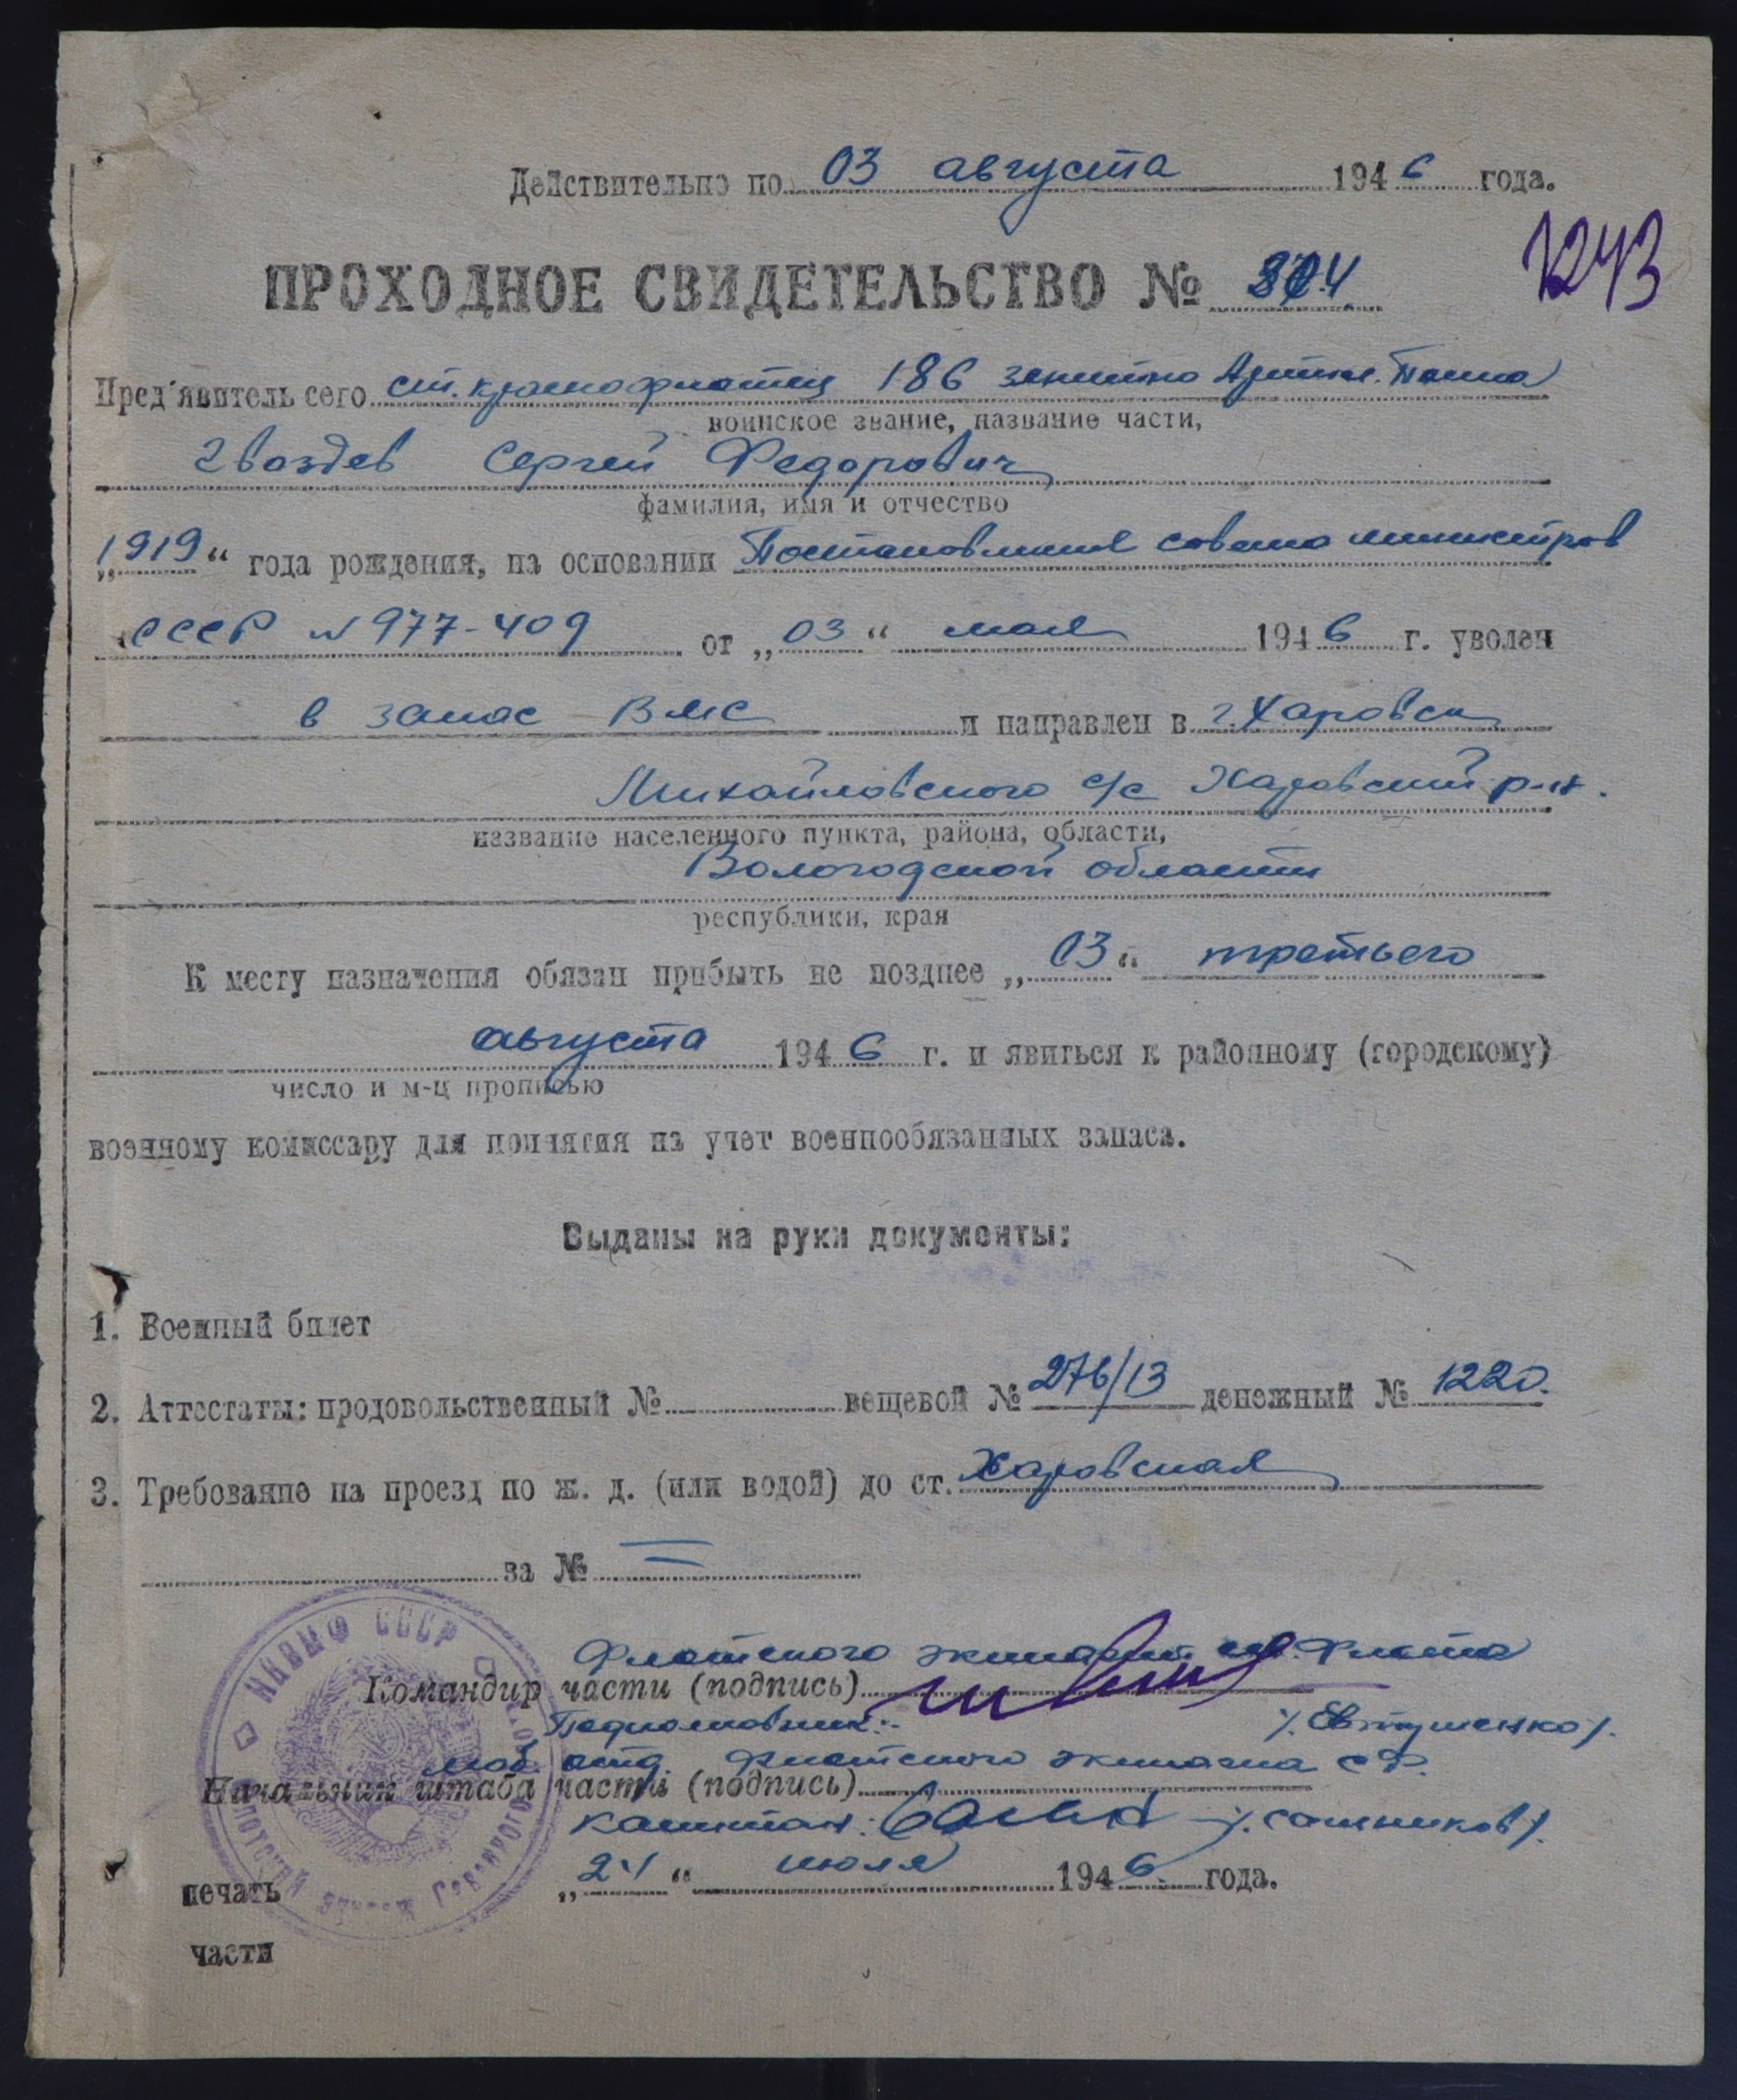 Действительно по 03 августа 1946 года.
ПРОХОДНОЕ СВИДЕТЕЛЬСТВО №
1243
Пред'явитель сего ст. краснофлотец 186 зенитно Артил. Полка
воинское звание, название части,
Гвоздев Сергей Федорович
фамилия, имя и отчество
„1919“ года рождения, на основании Постановления совета министров
СССР №977-409 от „03“ мая 1946 г. уволен
в запас ВМС и направлен в г. Харовск
Михайловского с/с Харовский р-н.
название населенного пункта, района, области,
Вологодской области
республики, края
К месту назначения обязан прибыть не позднее „03“ третьего
августа 1946 г. и явиться к районному (городскому)
число и м-ц прописью
военному комиссару для принятия на учет военнообязанных запаса.
Выданы на руки документы:
1. Военный билет
2. Аттестаты: продовольственный № вещевой № 276/13 денежный № 1220.
3. Требование на проезд по ж. д. (или водой) до ст. Харовская
за № =
НКВМФ СССР
Флотского экипажа сев. Флота
Командир части (подпись)
Подполковник: /. Евтушенко /.
моб. отд. Флотского экипажа СФ.
Начальник штаба части (подпись)
Капитан: /. Сошников /.
„24“ июля 1946. года.
печать
части